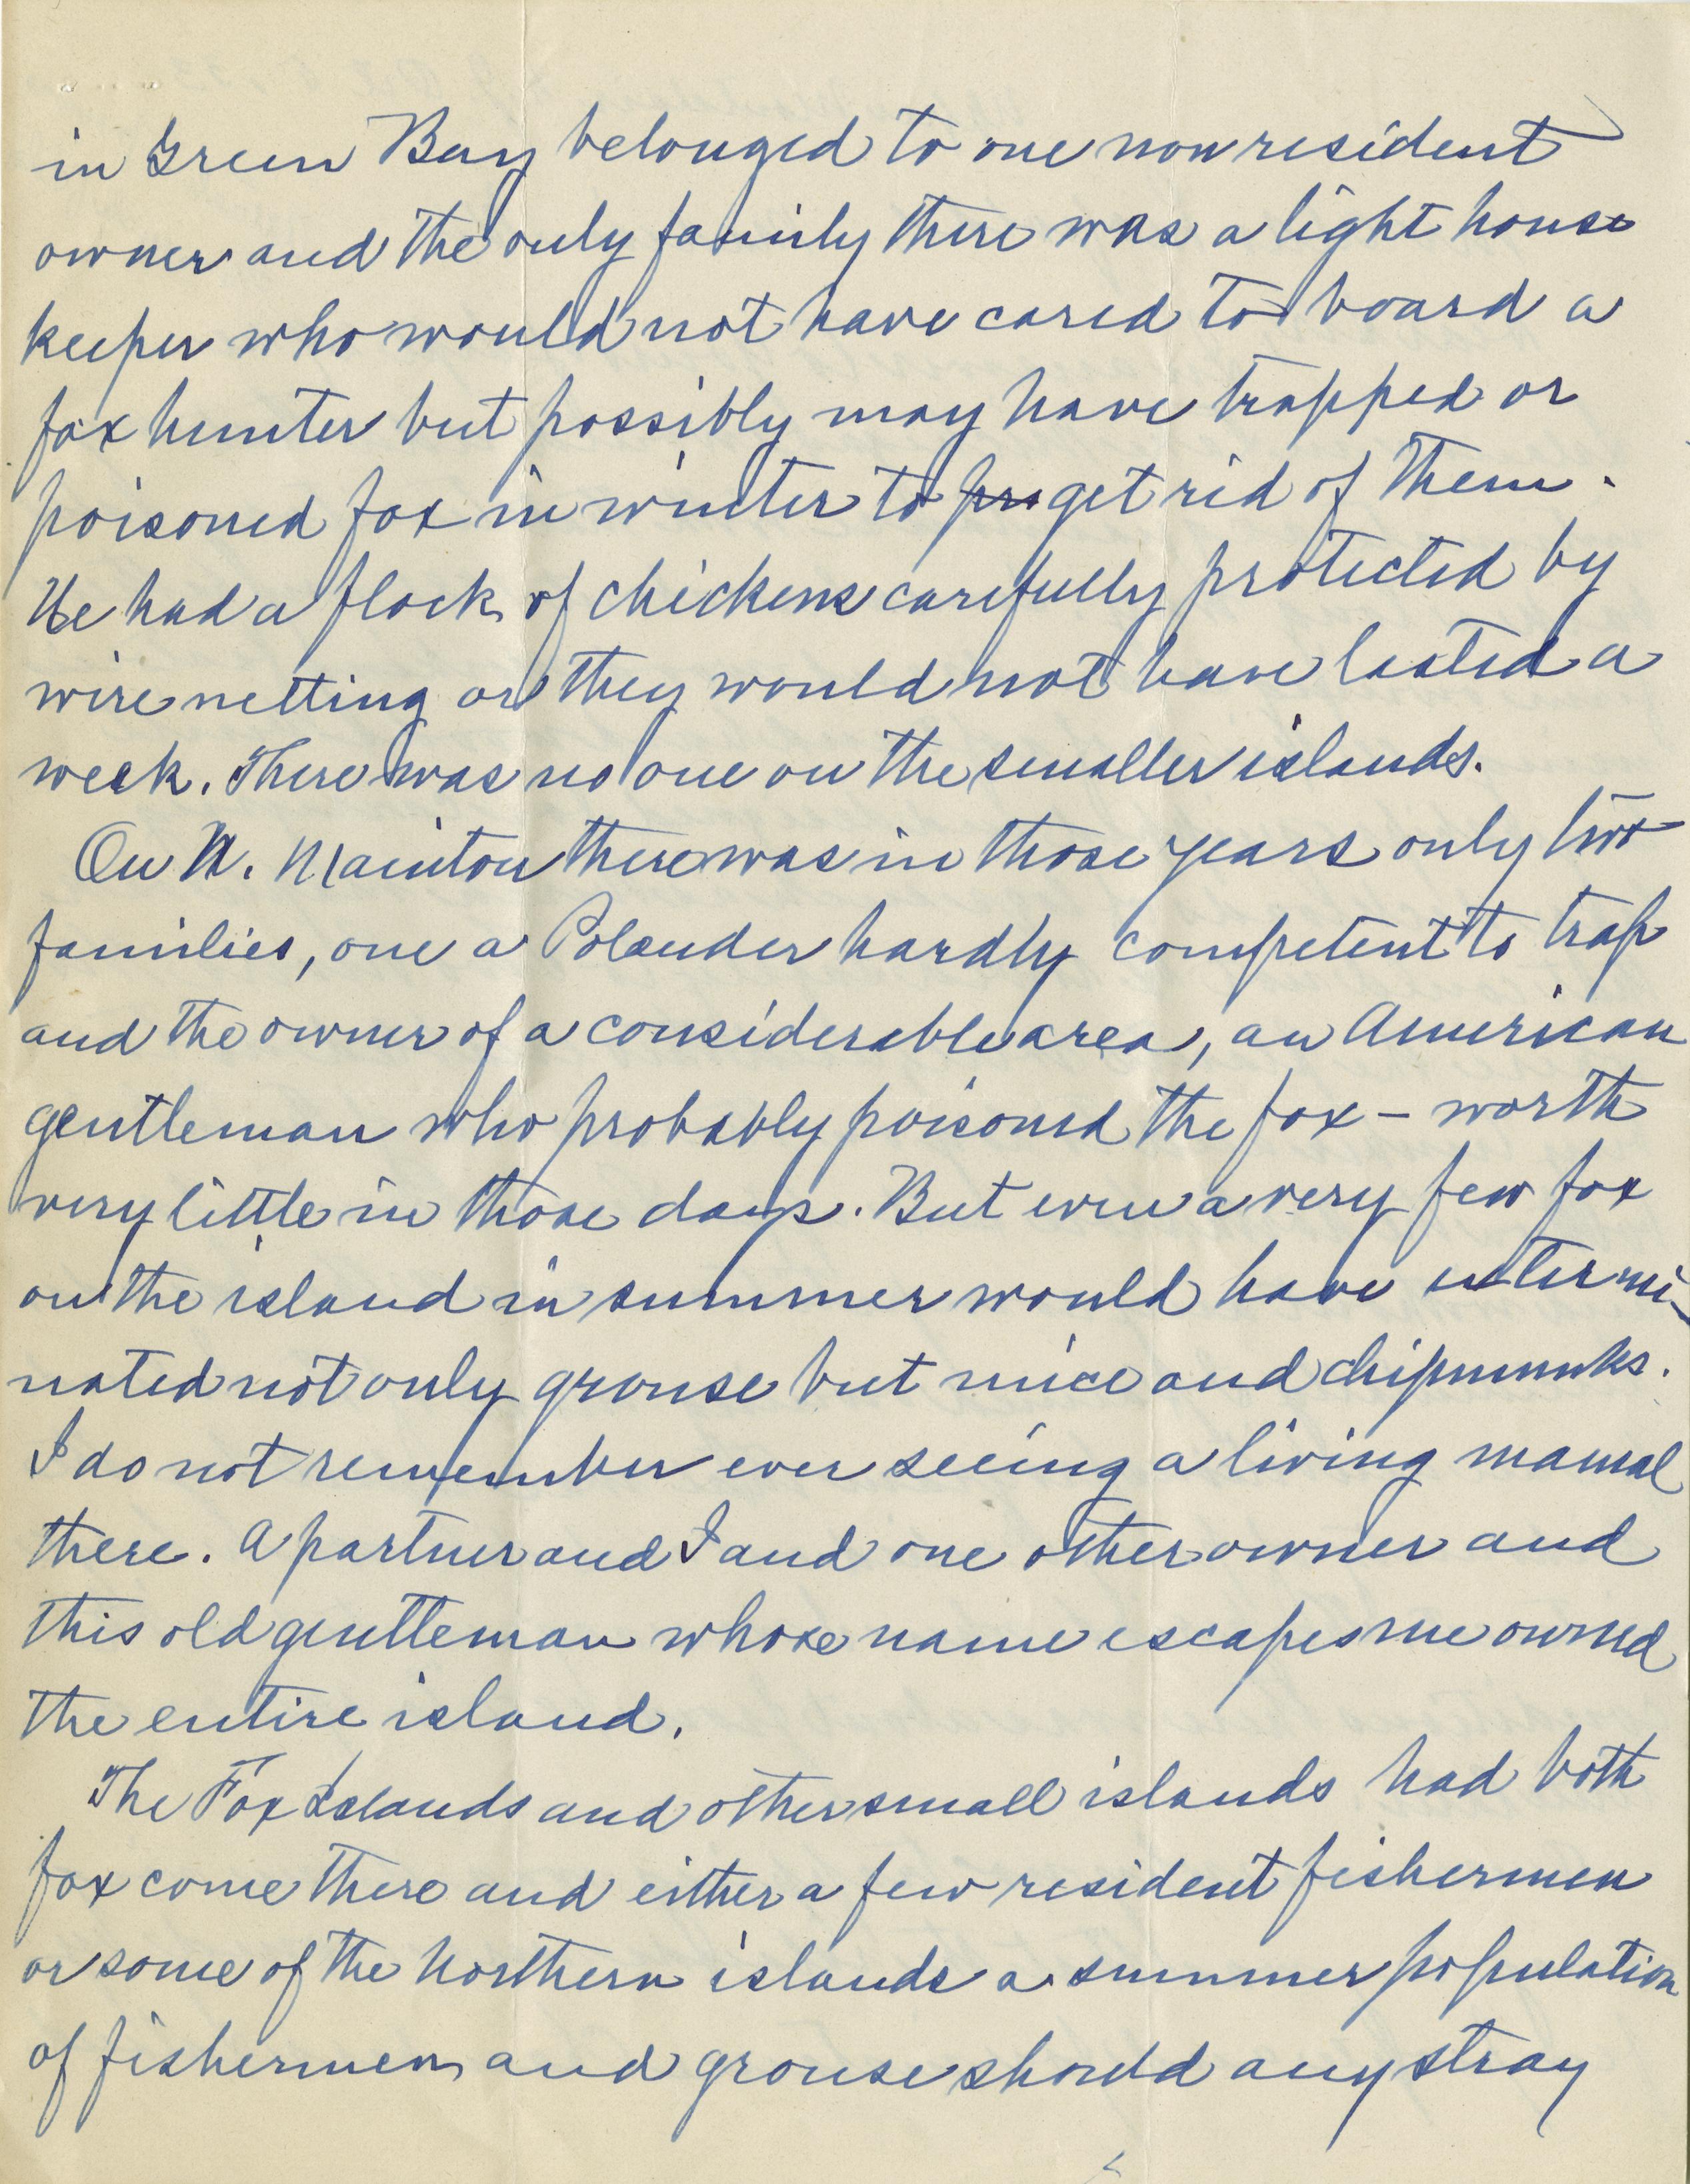 in Green Bay belonged to one non resident
owner and the only family there was a light house
keeper who would not have cared to board a
fox hunter but possibly may have trapped or
poisoned fox in winter to pr get rid of them.
He had a flock of chickens carefully protected by
wire netting or they would not have lasted a
week. There was no one on the smaller islands.
On N. Manitou there was in those years only two
families, one a Polander hardly competent to trap
and the owner of a considerable area, an American
gentleman who probably poisoned the fox - worth
very little in those days. But even a very few fox
on the island in summer would have extermi-
nated not only grouse but mice and chipmunks.
I do not remember ever seeing a living mamal
there. A partner and I and one other owner and
this old gentleman whose name escapes me owned
the entire island.
The Fox Islands and other small islands had both
fox come there and either a few resident fishermen
or some of the Northern islands a summer population
of fishermen and grouse should any stray